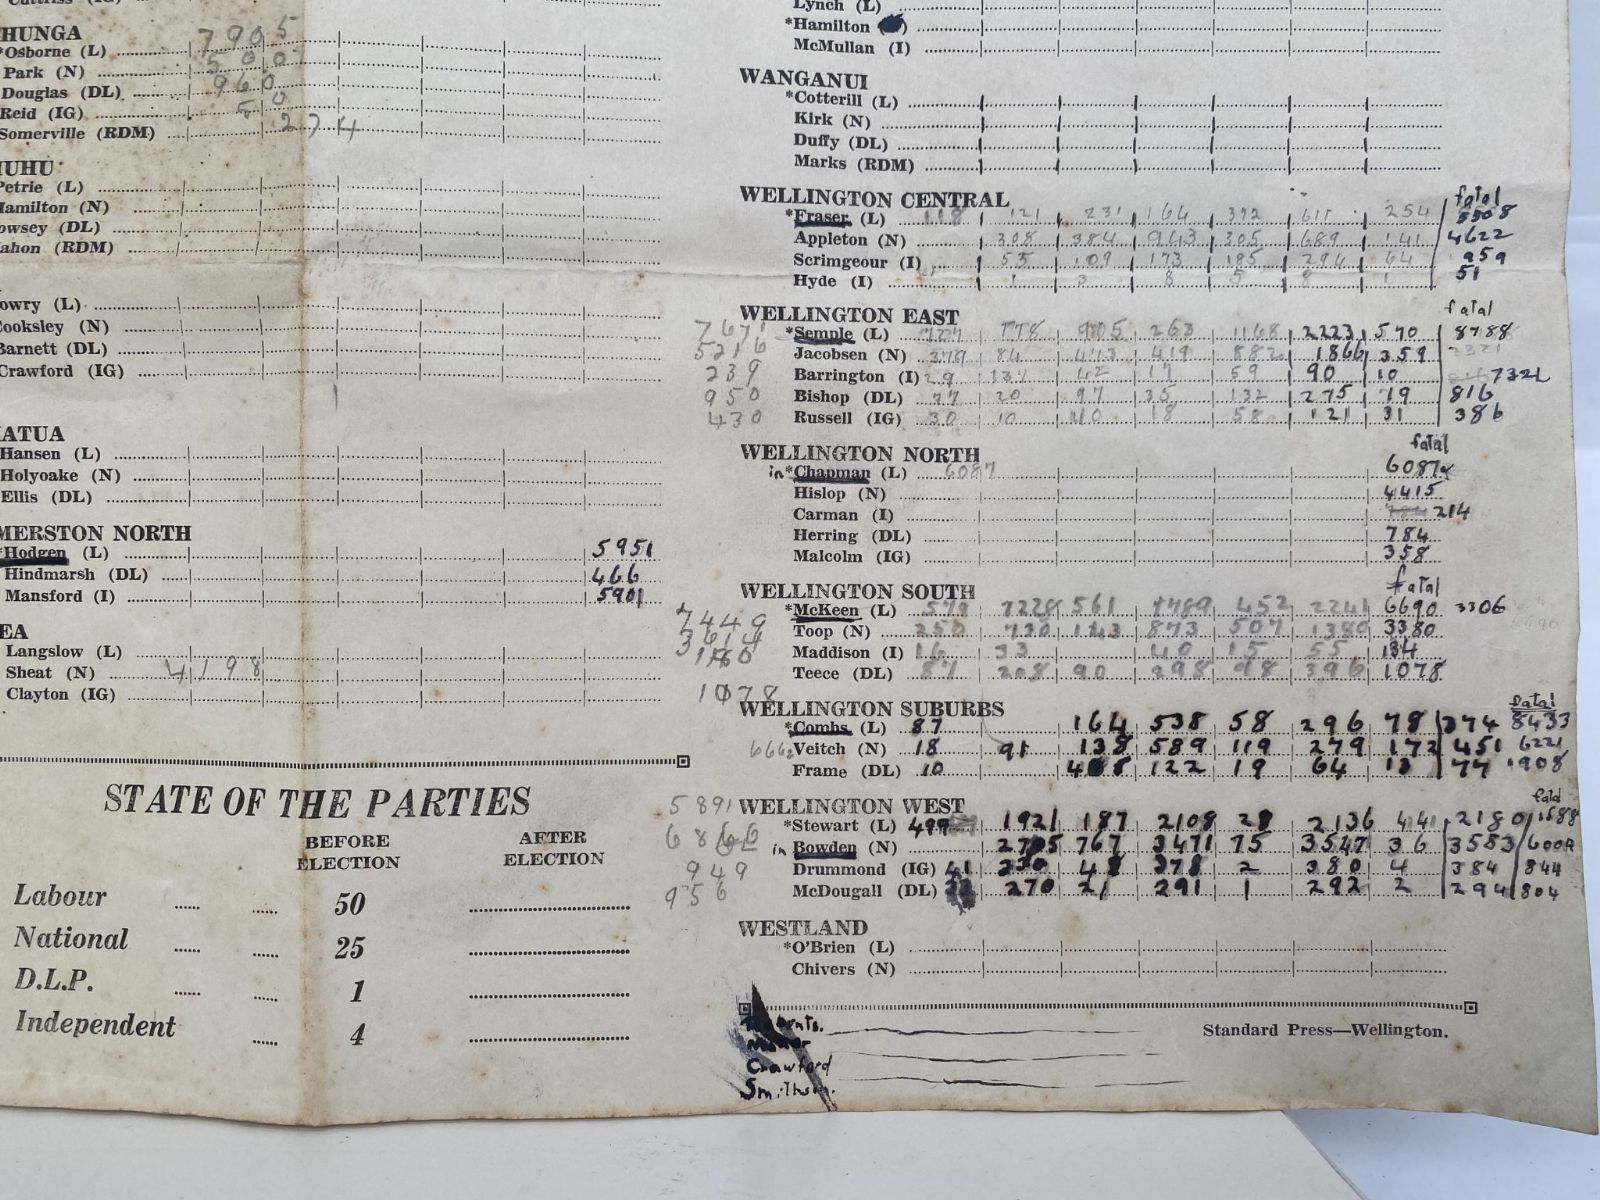 HUNGA 7905
*Osborne (L)
Park (N)
Douglas (DL) 960
Reid (IG) 50
Somerville (RDM) 274
UHU
Petrie (L)
Hamilton (N)
owsey (DL)
ahon (RDM)
owry (L)
Cooksley (N)
Barnett (DL)
Crawford (IG)
ATUA
Hansen (L)
Holyoake (N)
Ellis (DL)
MERSTON NORTH
*Hodgen (L) 5951
Hindmarsh (DL) 466
Mansford (I) 5901
EA
Langslow (L)
Sheat (N) 4198
Clayton (IG)
STATE OF THE PARTIES
BEFORE ELECTION AFTER ELECTION
Labour 50
National 25
D.L.P. 1
Independent 4
Lynch (L)
*Hamilton
McMullan (I)
WANGANUI
*Cotterill (L)
Kirk (N)
Duffy (DL)
Marks (RDM)
WELLINGTON CENTRAL
*Fraser (L) 118 121 231 164 372 611 254 5508
Appleton (N) 308 384 943 305 689 141 4622
Scrimgeour (I) 53 109 173 185 294 64 959
Hyde (I) 1 3 8 5 8 1 51
WELLINGTON EAST
7671 *Semple (L) 778 905 263 1168 2223 570 8788
5216 Jacobsen (N) 379 84 413 419 882 1866 359
239 Barrington (I) 29 137 42 17 59 90 10 7321
950 Bishop (DL) 77 20 97 35 132 275 79 816
430 Russell (IG) 30 10 40 18 58 121 31 386
WELLINGTON NORTH
in *Chapman (L) 6087 6087
Hislop (N) 4415
Carman (I) 214
Herring (DL) 784
Malcolm (IG) 358
WELLINGTON SOUTH
7449 *McKeen (L) 578 561 1789 452 2241 6690 3306
3614 Toop (N) 250 720 143 873 507 1380 3380
Maddison (I) 16 33 40 15 55 134
1078 Teece (DL) 87 208 90 298 98 396 1078
WELLINGTON SUBURBS
*Combs (L) 87 164 538 58 296 78 374 8433
Veitch (N) 18 91 138 589 119 279 172 451 6221
Frame (DL) 10 122 19 64 13 77 908
5891 WELLINGTON WEST
*Stewart (L) 499 1921 187 2108 28 2136 44 2180
in Bowden (N) 2705 767 3471 75 3547 36 3583
949 Drummond (IG) 41 330 48 378 2 380 4 384 844
956 McDougall (DL) 270 21 291 1 292 2 294 804
WESTLAND
*O'Brien (L)
Chivers (N)
Standard Press—Wellington.
Crawford
Smithson.